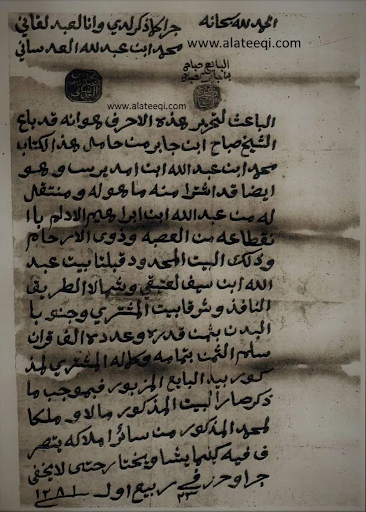 الحمد لله سبحانه
جرا كما ذكر لدي وانا العبد الفاني
محمد ابن عبد الله العدساني
www.alateeqi.com
البايع صباح
www.alateeqi.com
الباعث لتحرير هذه الاحرف هوانه قد باع
الشيخ صباح ابن جابر من حامل هذا الكتاب
محمد ابن عبد الله ابن وهو
ايضا قد اشترا منه ما هو له ومنتقل
له من عبد الله ابن ابراهيم با
نقطاعه من العصبه وذوي الارحام
وذلك البيت المحدود قبلتا بيت عبد
الله ابن سيف العتيقي وشمالا الطريق
النافذ وشرقا بيت المشتري وجنوبا
بثمن قدره وعدده الف قران
سلم الثمن بتمامه وكماله المشتري المذ
كور بيد البايع المزبور فبموجب ما
ذكر صار البيت المذكور مالا وملكا
لمحمد المذكور من سائر املاكه يتصر
ف فيه كيفما يشا ويختار حتى لا يخفى
جرا وحرر في ٢٣ ربيع اول سنة ١٢٨١